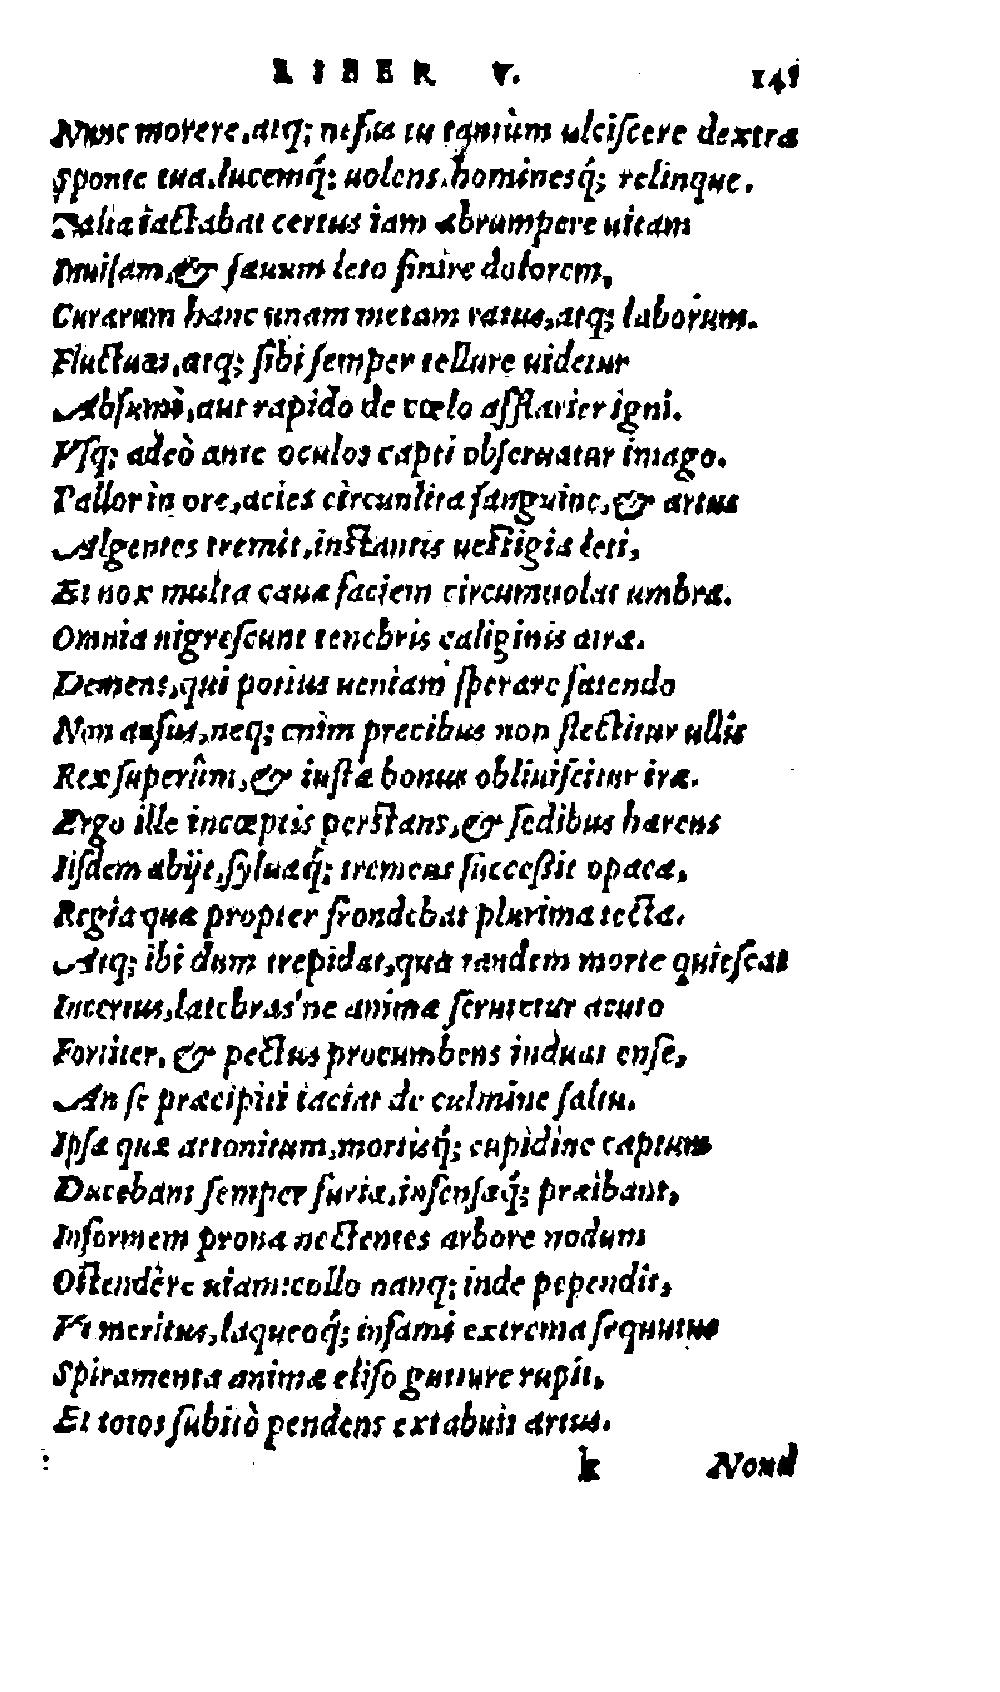 LIBER V. 145
Nunc morere, atq; nefas tu tantùm ulciscere dextra
Sponte tua, lucemq́; uolens, hominesq́; relinque.
Talia iactabat certus iam abrumpere uitam
Inuisam, & sæuum leto finire dolorem,
Curarum hanc unam metam ratus, atq; laborum.
Fluctuat, atq; sibi semper tellure uidetur
Absumi, aut rapido de cœlo afflarier igni.
Vsq; adeò ante oculos capti obseruatur imago.
Pallor in ore, acies circunlita sanguine, & artus
Algentes tremit, instantis uestigia leti,
Et nox multa caua faciem circumuolat umbra.
Omnia nigrescunt tenebris caliginis atræ.
Demens, qui potius ueniam sperare fatendo
Non ausus, neq; enim precibus non flectitur ullis
Rex superûm, & iustæ bonus obliuiscitur iræ.
Ergo ille incœptis perstans, & sedibus hærens
Iisdem abijt, syluaq́; tremens successit opaca,
Regia quæ propter frondebat plurima tecta.
Atq; ibi dum trepidat, qua tandem morte quiescat
Incertus, latebras'ne animæ scrutetur acuto
Fortiter, & pectus procumbens induat ense,
An se præcipiti iaciat de culmine saltu.
Ipsæ quæ attonitum, mortisq́; cupidine captum
Ducebant semper furiæ, infensæq́; præibant,
Informem prona nectentes arbore nodum
Ostendêre uiam: collo nanq; inde pependit,
Vt meritus, laqueoq́; infami extrema sequutus
Spiramenta animæ eliso gutture rupit,
Et totos subitò pendens extabuit artus.
k Nond